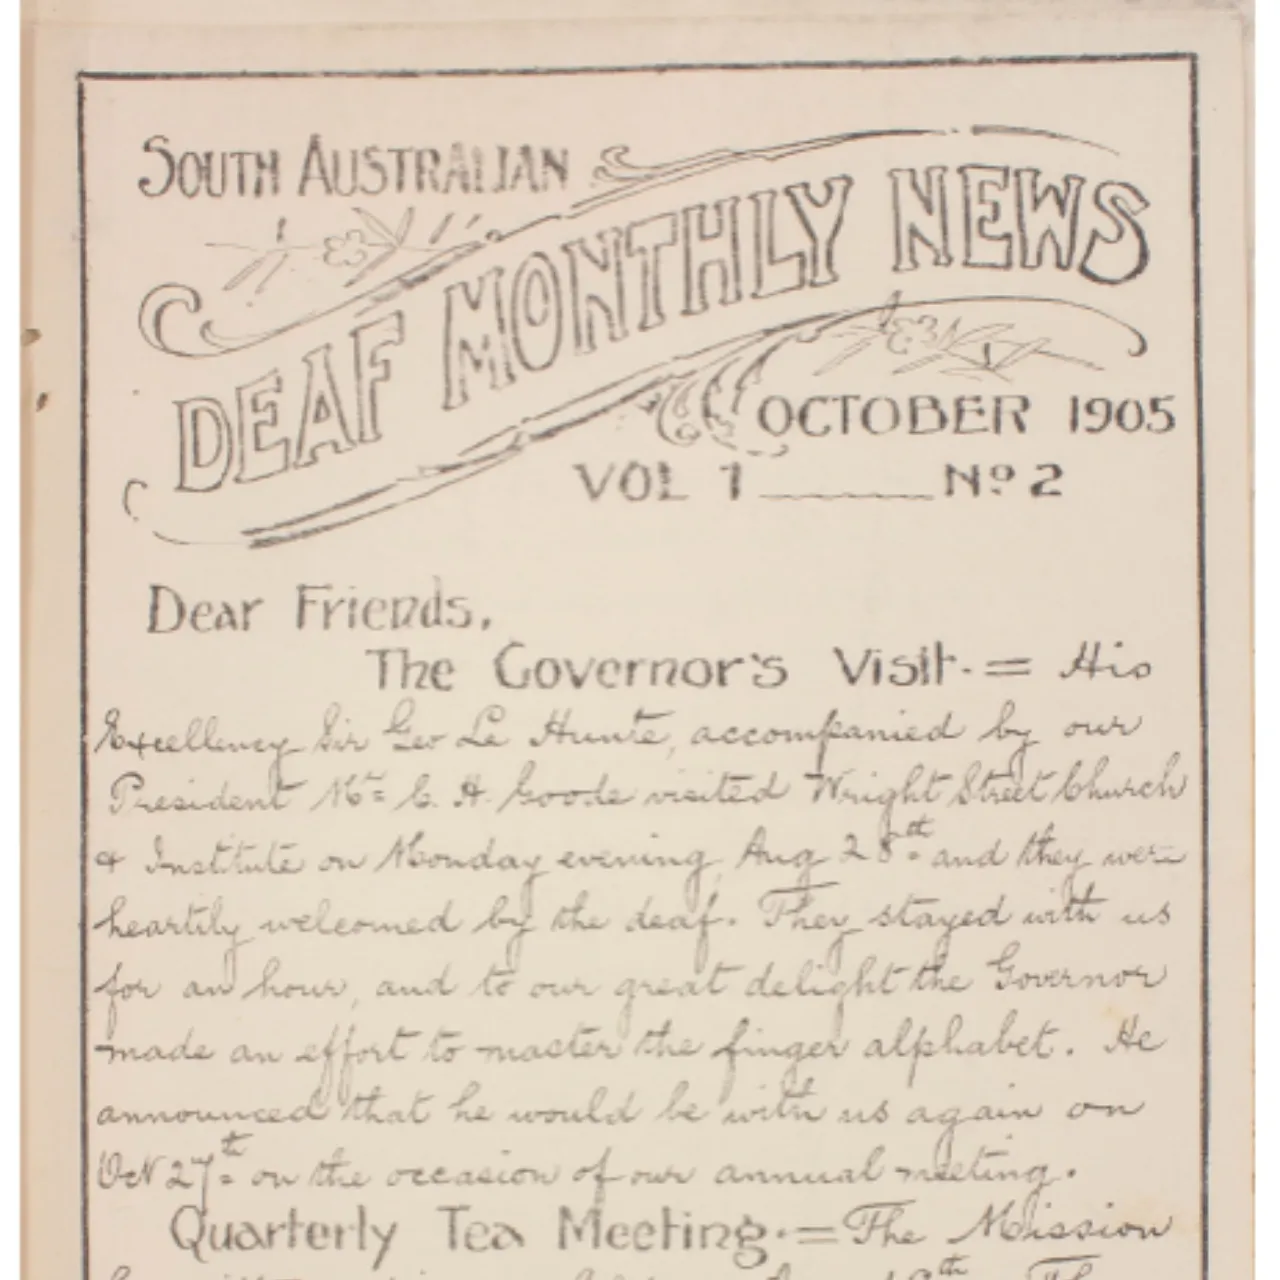 SOUTH AUSTRALIAN
DEAF MONTHLY NEWS
OCTOBER 1905
VOL 1 No 2
Dear Friends,
The Governor's Visit.= His
Excellency Sir Geo Le Hunte, accompanied by our
President Mr C. H. Goode visited Wright Street Church
& Institute on Monday evening, Aug 28th and they were
heartily welcomed by the deaf. They stayed with us
for an hour, and to our great delight the Governor
made an effort to master the finger alphabet. He
announced that he would be with us again on
Oct 27th on the occasion of our annual meeting.
Quarterly Tea Meeting.= The Mission